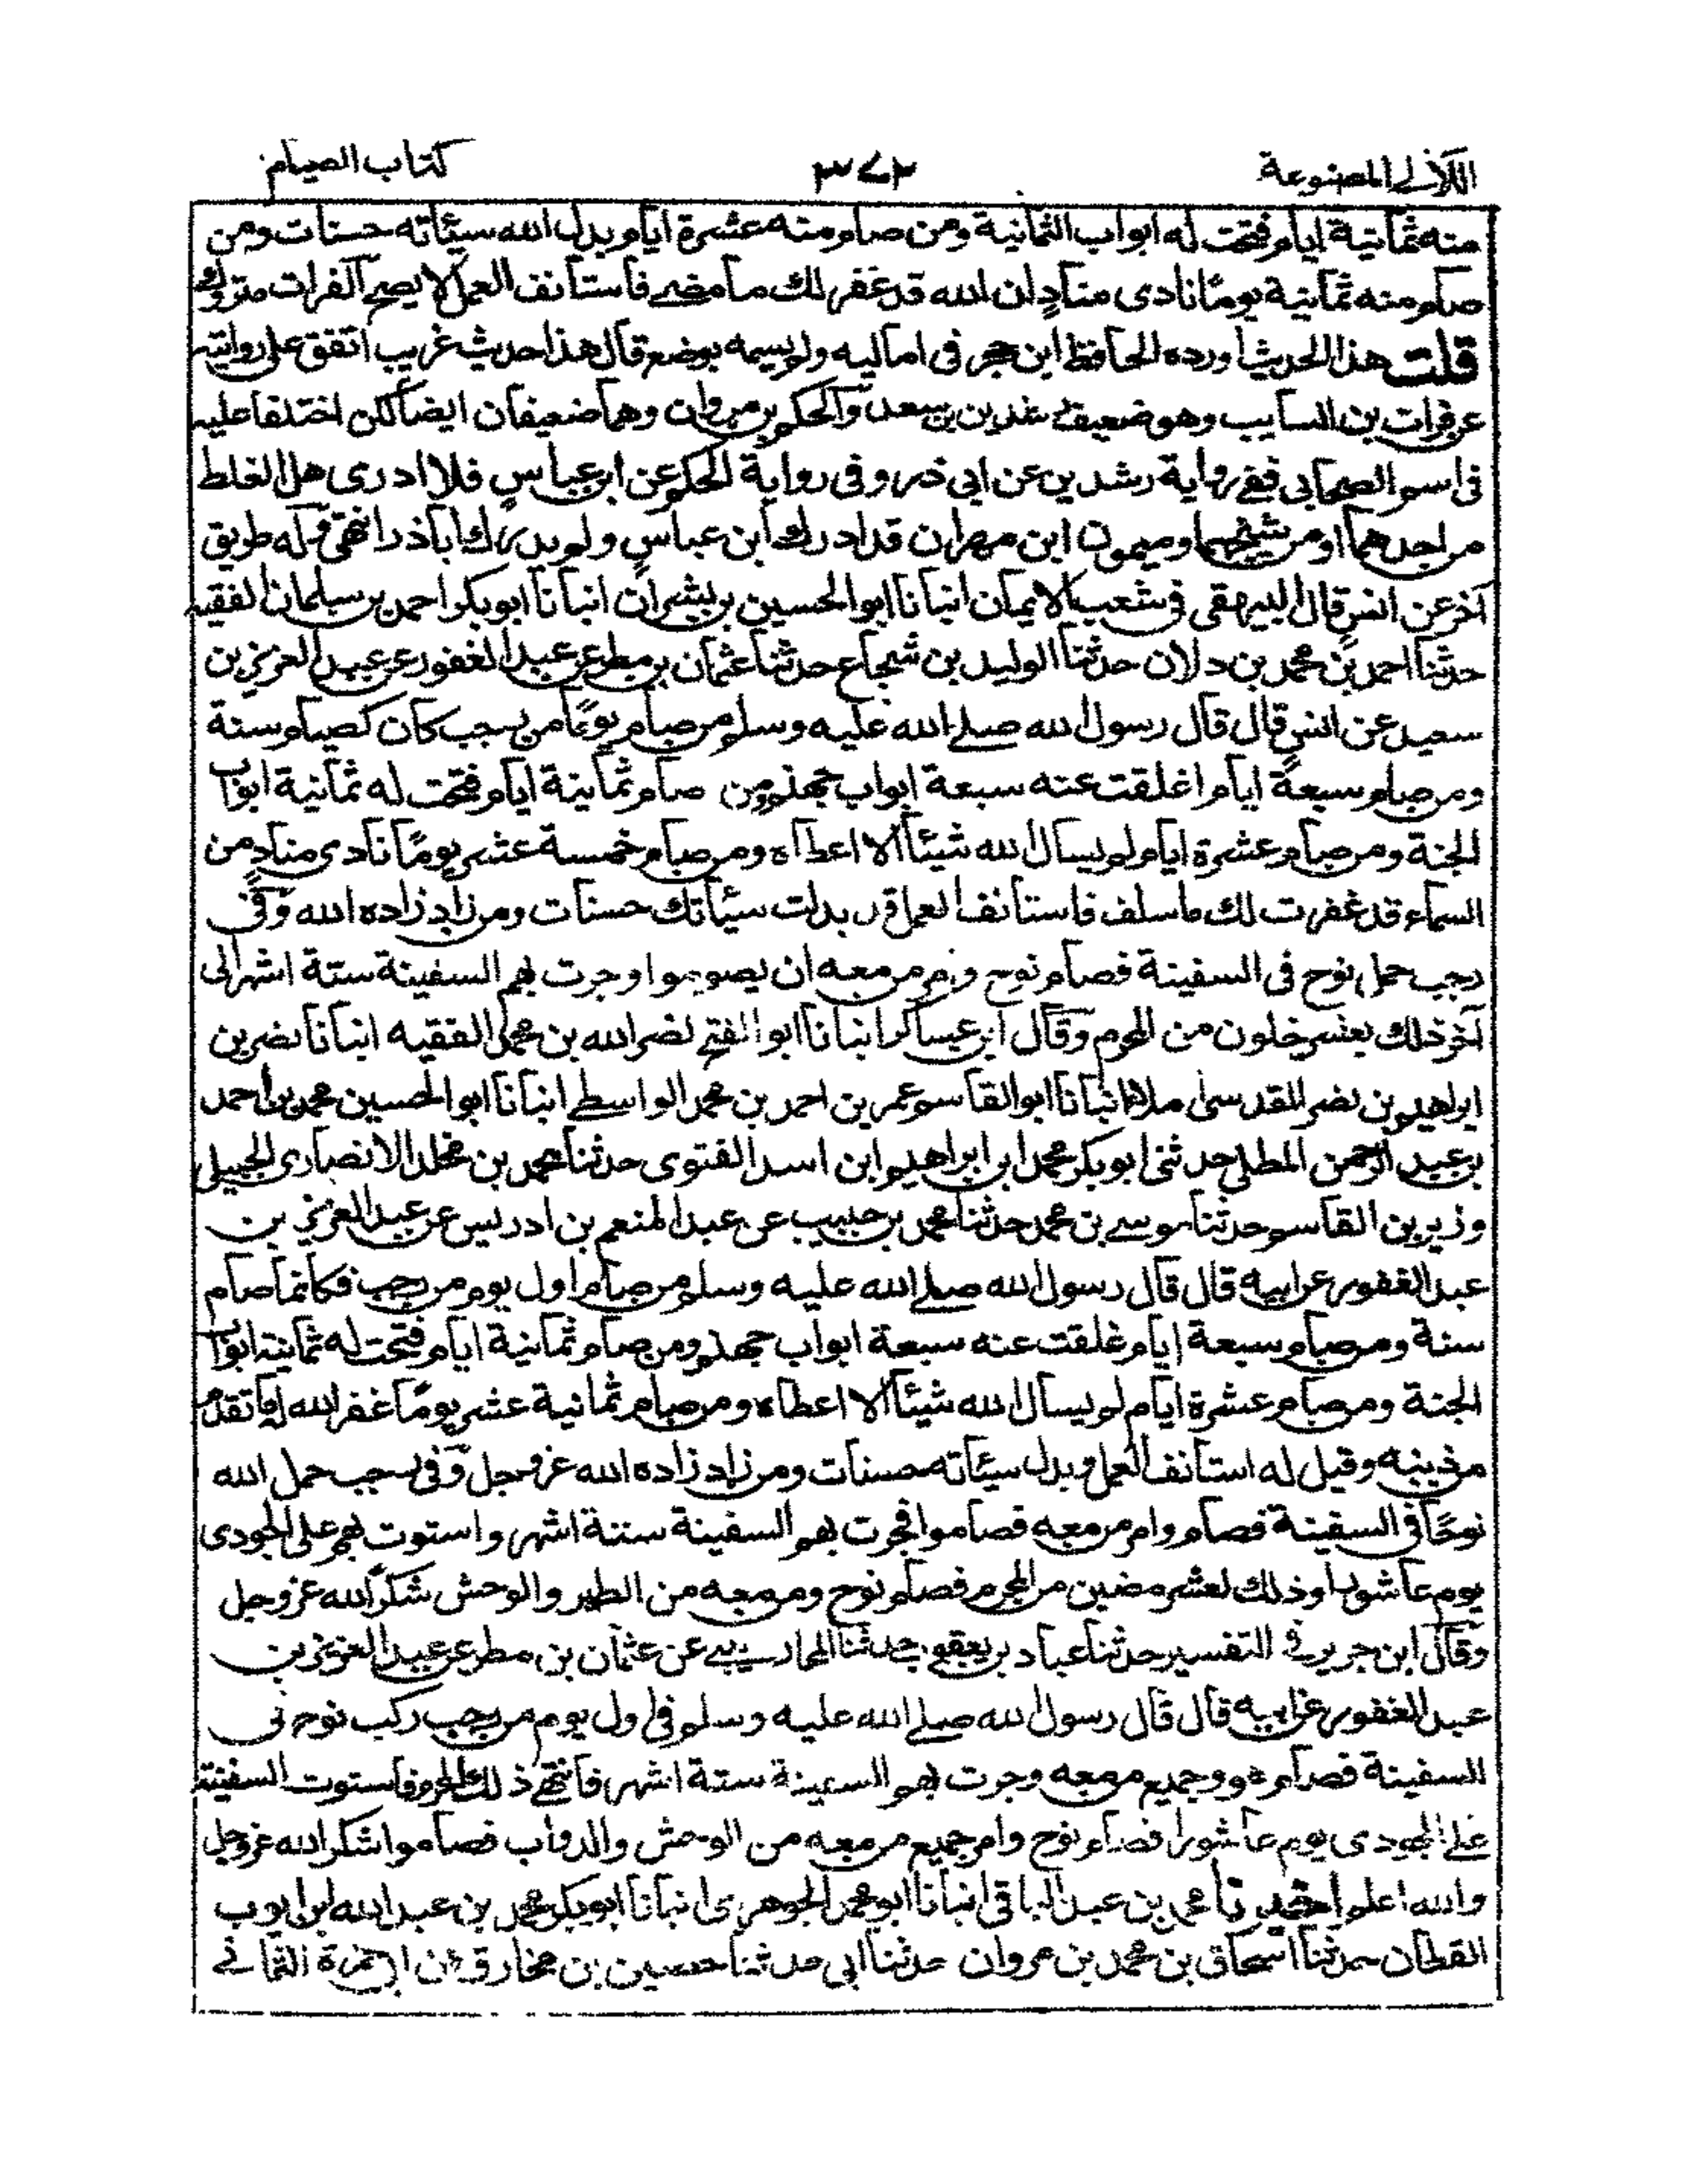 اللآلى المصنوعة ٣٧٢ كتاب الصيام
منه ثمانية ايام فتحت له ابواب الثمانية ومن صام منه عشرة ايام بدل الله سيئاته حسنات ومن
صام منه ثمانية يوما نادى منادٍ ان الله قد غفر لك ما مضى فاستانف العمل لا يصح الفرات متروك
قلت هذا الحديث اورده الحافظ ابن حجر فى اماليه ولم يسمه بوضع قال هذا حديث غريب اتفق على روايته
عن فرات بن السايب وهو ضعيف رشدين بن سعد والحكم بن مروان وهما ضعيفان ايضا لكن اختلفا عليه
فى اسم الصحابى ففى رواية رشدين عن ابى ذر وفى رواية الحكم عن ابن عباسٍ فلا ادرى هل الغلط
من احدهما او من شيخهما وميمون ابن مهران قد ادرك ابن عباسٍ ولم يدرك اباذر انتهى وله طريق
آخر عن انسٍ قال البيهقى فى شعب الايمان انبانا ابو الحسين بن بشران انبانا ابو بكر احمد بن سلمان الفقيه
حدثنا احمد بن محمد بن دلان حدثنا الوليد بن شجاع حدثنا عثمان بن مطر عن عبد الغفور عن عبد العزيز بن
سعيد عن انسٍ قال قال رسول الله صلى الله عليه وسلم من صام يومًا من رجب كان كصيام سنة
ومن صام سبعة ايام اغلقت عنه سبعة ابواب جهنم ومن صام ثمانية ايام فتحت له ثمانية ابواب
الجنة ومن صام عشرة ايام لم يسال الله شيئا الا اعطاه ومن صام خمسة عشر يومًا نادى منادٍ من
السماء قد غفرت لك ما سلف فاستانف العمل قد بدلت سيئاتك حسنات ومن زاد زاده الله وفى
رجب حمل نوح فى السفينة فصام نوح وامر من معه ان يصوموا وجرت بهم السفينة ستة اشهر الى
آخر ذلك بعشر خلون من المحرم وقال ابن عساكر انبانا ابو الفتح نصر الله بن محمد الفقيه انبانا نصر بن
ابراهيم بن نصر المقدسى املاء انبانا ابو القاسم عمر بن احمد بن محمد الواسطى انبانا ابو الحسين محمد بن احمد
بن عبد الرحمن الملطى حدثنى ابو بكر محمد ابن ابراهيم ابن اسد الفتوى حدثنا محمد بن مخلد الانصارى الجبيلى
وزير بن القاسم حدثنا موسى بن محمد حدثنا محمد بن حبيب عن عبد المنعم بن ادريس عن عبد العزيز بن
عبد الغفور عن ابيه قال قال رسول الله صلى الله عليه وسلم من صام اول يوم من رجب فكانما صام
سنة ومن صام سبعة ايام غلقت عنه سبعة ابواب جهنم ومن صام ثمانية ايام فتحت له ثمانية ابواب
الجنة ومن صام عشرة ايام لم يسال الله شيئا الا اعطاه ومن صام ثمانية عشر يومًا غفر الله له ما تقدم
من ذنبه وقيل له استانف العمل وبدل سيئاته حسنات ومن زاد زاده الله عزوجل وفى رجب حمل الله
نوحًا فى السفينة فصام وامر من معه فصاموا فجرت بهم السفينة ستة اشهر واستوت بهم على الجودى
يوم عاشورا وذلك لعشر مضين من المحرم فصام نوح ومن معه من الطير والوحش شكرًا لله عزوجل
وقال ابن جرير فى التفسير حدثنا عباد بن يعقوب حدثنا المحاربى عن عثمان بن مطر عن عبد العزيز بن
عبد الغفور عن ابيه قال قال رسول الله صلى الله عليه وسلم فى اول يوم من رجب ركب نوح فى
السفينة فصام هو وجميع من معه وجرت بهم السفينة ستة اشهر فانتهى ذلك المحرم فاستوت السفينة
على الجودى يوم عاشورا فصام نوح وامر جميع من معه من الوحش والدواب فصاموا شكرا لله عزوجل
والله اعلم اخبرنا محمد بن عبد الباقى انبانا ابو محمد الجوهرى انبانا ابو بكر محمد بن عبد الله ابن ايوب
القطان حدثنا اسحاق بن محمد بن مروان حدثنا ابى حدثنا حصين بن مخارق عن ابى حمزة الثمالى